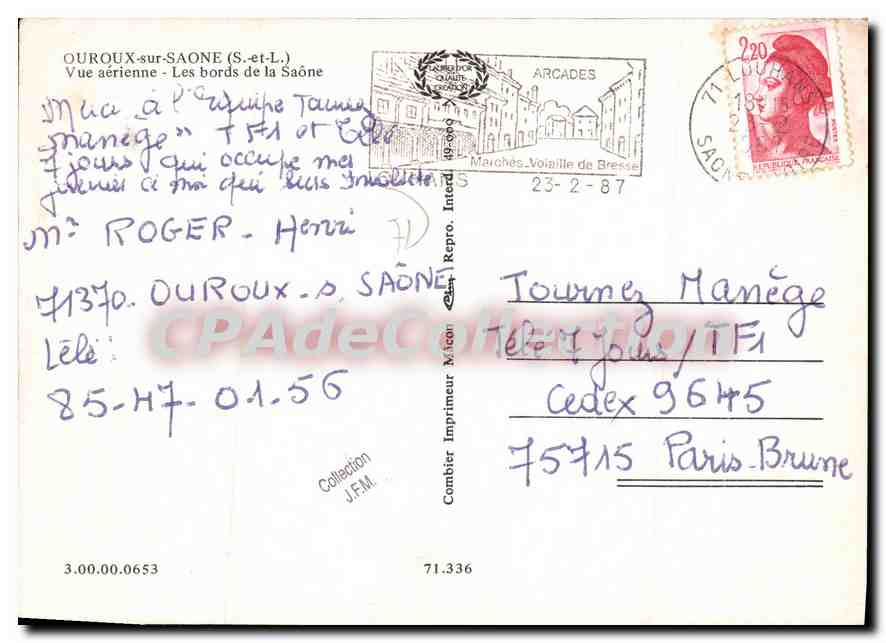 OUROUX-sur-SAONE (S.-et-L.)
Vue aérienne - Les bords de la Saône
à l'équipe Tournez
manège" TF1 et Télé
7 jours qui occupe mes
à moi qui suis
Mr ROGER - Henri
71370. OUROUX-s. SAÔNE
Télé:
85-47-01-56
3.00.00.0653
71.336
Combier Imprimeur Mâcon Repro. Interd. 49-099
Collection
J.F.M.
LAURIER D'OR
QUALITÉ
CRÉATION
ARCADES
Marchés_Volaille de Bresse
LOUHANS
23-2-87
71 LOUHANS
SAONE
2,20
REPUBLIQUE FRANÇAISE
Tournez Manège
Télé 7 Jours/TF1
Cedex 9645
75715 Paris-Brune
CPAdeCollection